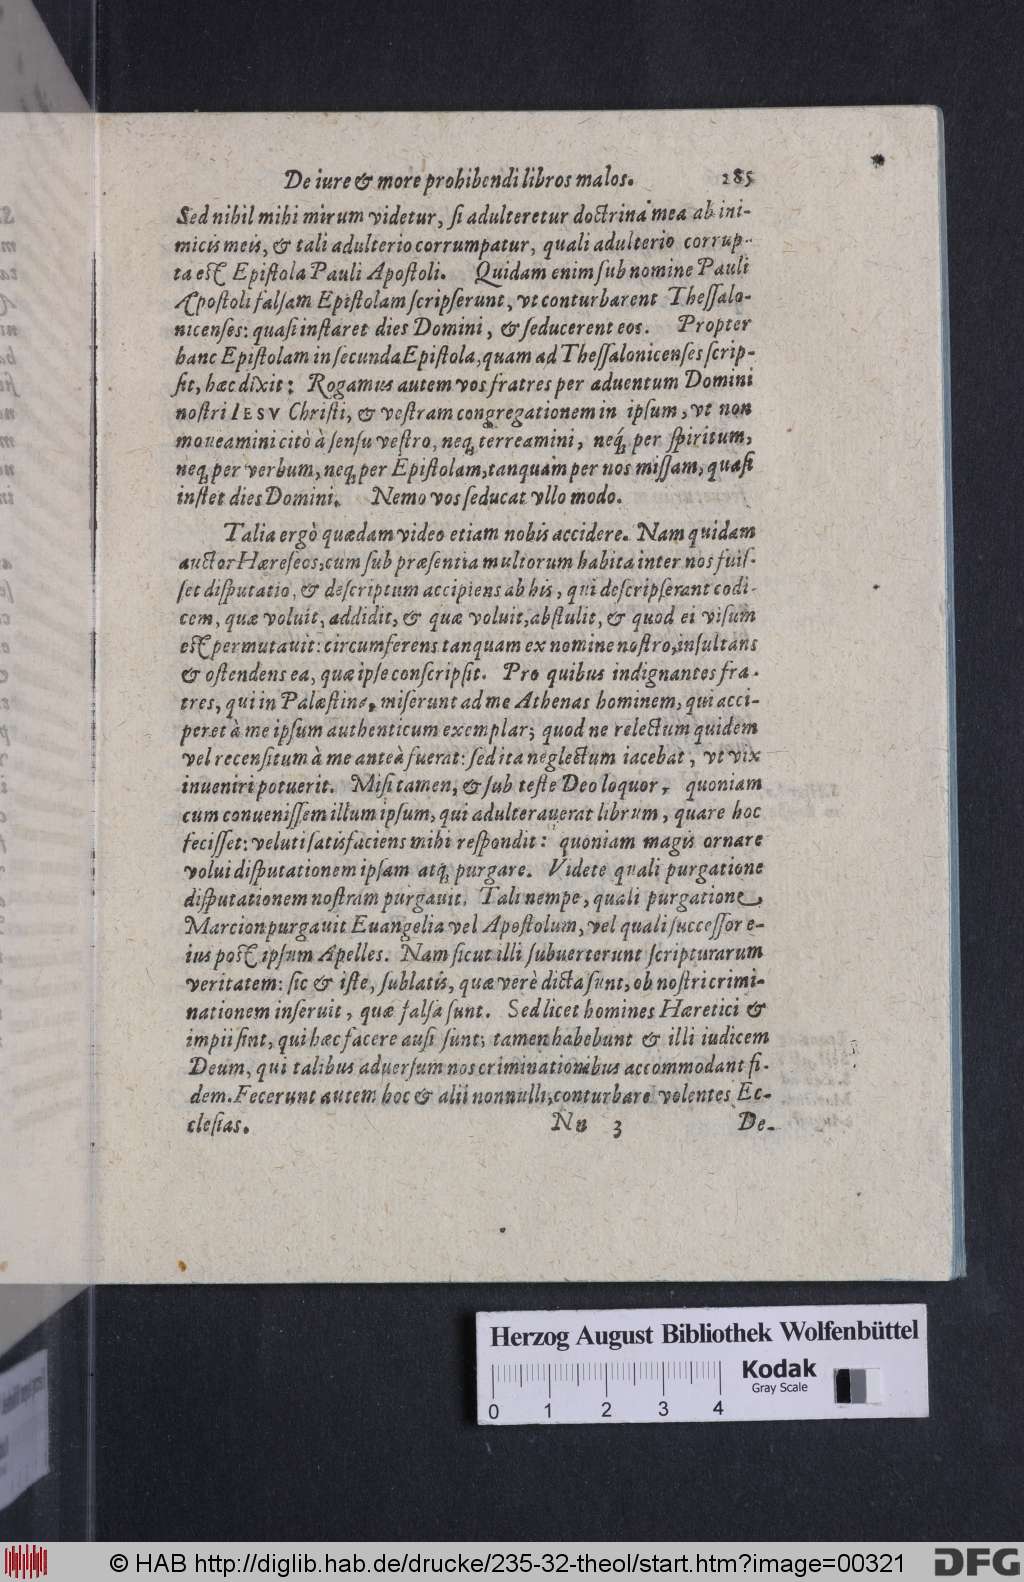 De iure & more prohibendi libros malos. 285
Sed nihil mihi mirum videtur, ſi adulteretur doctrina mea ab ini-
micis meis, & tali adulterio corrumpatur, quali adulterio corrup-
ta eſt Epiſtola Pauli Apoſtoli. Quidam enim ſub nomine Pauli
Apoſtoli falſam Epiſtolam ſcripſerunt, vt conturbarent Theſſalo-
nicenſes: quaſi inſtaret dies Domini, & ſeducerent eos. Propter
hanc Epiſtolam in ſecunda Epiſtola, quam ad Theſſalonicenſes ſcrip-
ſit, hæc dixit: Rogamus autem vos fratres per aduentum Domini
noſtri IESV Chriſti, & veſtram congregationem in ipſum, vt non
moueamini citò à ſenſu veſtro, neq́; terreamini, neq́; per ſpiritum,
neq́; per verbum, neq́; per Epiſtolam, tanquam per nos miſſam, quaſi
inſtet dies Domini. Nemo vos ſeducat vllo modo.
Talia ergò quædam video etiam nobis accidere. Nam quidam
auctor Hæreſeos, cum ſub præſentia multorum habita inter nos fuiſ-
ſet diſputatio, & deſcriptum accipiens ab his, qui deſcripſerant codi-
cem, quæ voluit, addidit, & quæ voluit, abſtulit, & quod ei viſum
eſt permutauit: circumferens tanquam ex nomine noſtro, inſultans
& oſtendens ea, quæ ipſe conſcripſit. Pro quibus indignantes fra-
tres, qui in Palæſtina, miſerunt ad me Athenas hominem, qui acci-
peret à me ipſum authenticum exemplar; quod ne relectum quidem
vel recenſitum à me anteà fuerat: ſed ita neglectum iacebat, vt vix
inueniri potuerit. Miſi tamen, & ſub teſte Deo loquor, quoniam
cum conueniſſem illum ipſum, qui adulterauerat librum, quare hoc
feciſſet: veluti ſatisfaciens mihi reſpondit: quoniam magis ornare
volui diſputationem ipſam atq́; purgare. Videte quali purgatione
diſputationem noſtram purgauit. Tali nempe, quali purgatione
Marcion purgauit Euangelia vel Apoſtolum, vel quali ſucceſſor e-
ius poſt ipſum Apelles. Nam ſicut illi ſubuerterunt ſcripturarum
veritatem: ſic & iſte, ſublatis, quæ verè dicta ſunt, ob noſtri crimi-
nationem inſeruit, quæ falſa ſunt. Sed licet homines Hæretici &
impii ſint, qui hæc facere auſi ſunt; tamen habebunt & illi iudicem
Deum, qui talibus aduerſum nos criminationibus accommodant fi-
dem. Fecerunt autem hoc & alii nonnulli, conturbare volentes Ec-
cleſias.
Nn 3 De-
Herzog August Bibliothek Wolfenbüttel
Kodak
Gray Scale
0 1 2 3 4
© HAB http://diglib.hab.de/drucke/235-32-theol/start.htm?image=00321
DFG